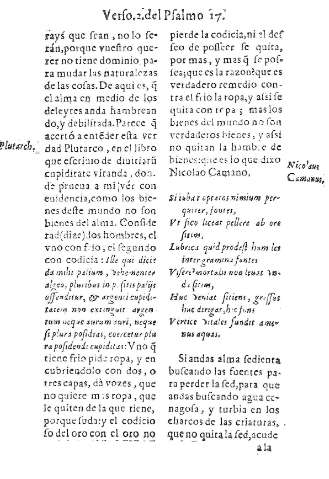 Verso.2.del Psalmo 17.
rays que sean, no lo se-
rán, porque vuestro quer-
rer no tiene dominio pa-
ra mudar las naturalezas
de las cosas. De aqui es, q̃
el alma en medio de los
deleytes anda hambrean
do, y debilitada. Parece q̃
acertó a entẽder esta ver
dad Plutarco, en el libro
que escriuio de diuitiarũ
cupiditate vitanda, don-
de prueua a mi ver con
euidencia, como los bie-
nes deste mundo no son
bienes del alma. Consíde
rad (dize) los hombres, el
vno con frio, el segundo
con codicia: Ille qui dicit
da mihi palium, vehementer
algeo, pluribus
offenditur, & argenti cupidi-
tatem non extinguit argen-
tum neque aurum, neque
si plura possideas, coercetur plu
ra posidendi cupiditas: Vno q̃
tiene frio pide ropa, y en
cubriendolo con dos, o
tres capas, dà vozes, que
no quiere mas ropa, que
le quiten de la que tiene,
porque suda: y el codicio
so del oro con el oro no
Plutarch.
pierde la codicia, ni el des
seo de posseer se quita,
por mas, y mas q̃ se pos-
sea; que es la razon? que es
verdadero remedio con-
tra el frio la ropa, y assi se
quita con ropa; mas los
bienes del mundo no son
verdaderos bienes, y assi
no quitan la hambre de
bienes: que es lo que dixo
Nicolao Camano.
Nicolaus
Camanus,
Si tu bat opatos nimium per-
quirere, fontes,
Vt fico liceat pellere ab ore
sitim,
Lubrica quid prodest humiles
inter gramina fontes
Viscera mortalis non leuat vn-
da sitim,
Huc veniat sitiens, gressus
huc dirigat, huc
Vertice vitales fundit amœ-
nus aquas.
Si andas alma sedienta
buscando las fuentes pa-
ra perder la sed, para que
andas buscando agua ce-
nagosa, y turbia en los
charcos de las criaturas,
que no quita la sed, acude
a la